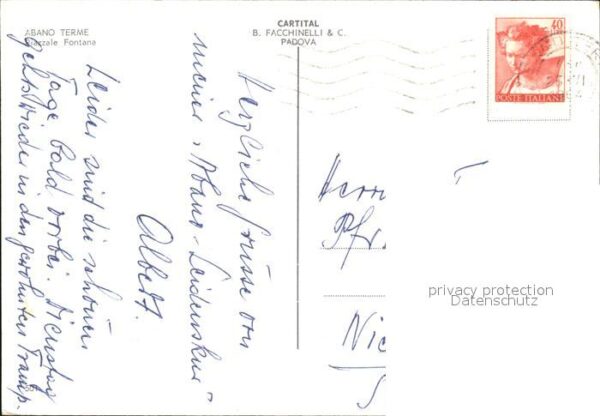 ABANO TERME
Piazzale Fontana
CARTITAL
B. FACCHINELLI & C.
PADOVA
40
POSTE ITALIANE
Herzliche Grüsse von
meiner "Abano-Leidenskur"
Albert.
Leider sind die schönen
Tage bald vorbei. Dienstag
geht's wieder in den gewohnten Tramp.
Herrn
Pfr.
Nie
privacy protection
Datenschutz